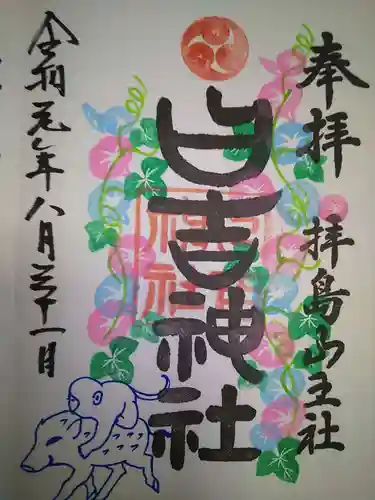 奉拝 拝島山王社
日吉神社
令和元年八月三十一日